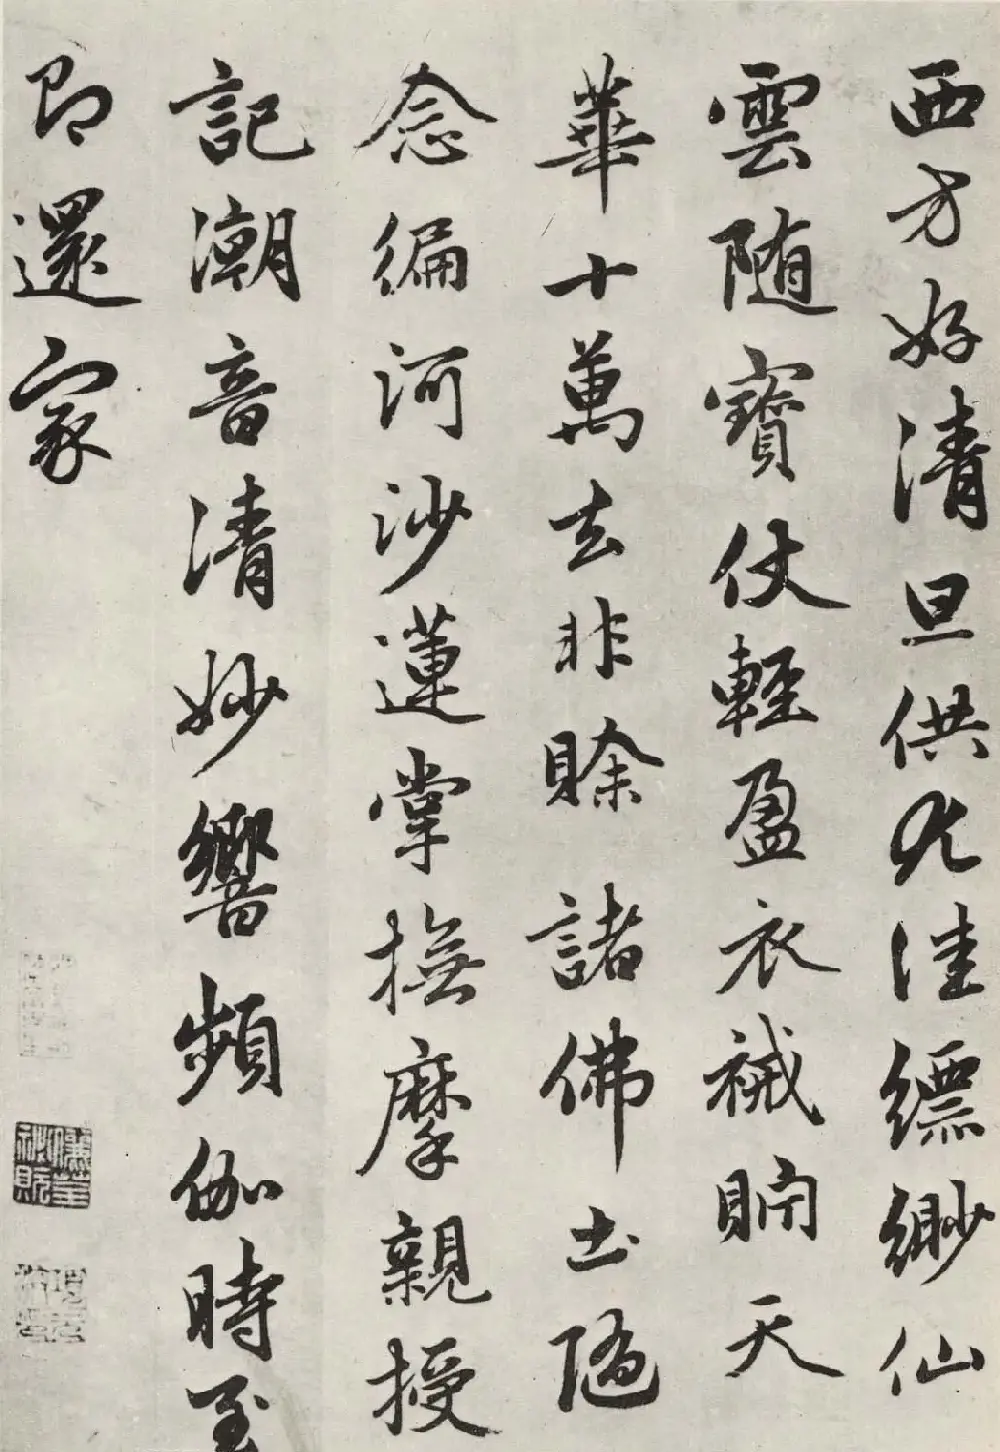 西方好清旦供尤佳缥缈仙
雲随寳仗輕盈衣裓賙天
華十萬去非賒諸佛土隨
念徧河沙蓮掌撫摩親授
記潮音清妙響頻伽時至
即還家